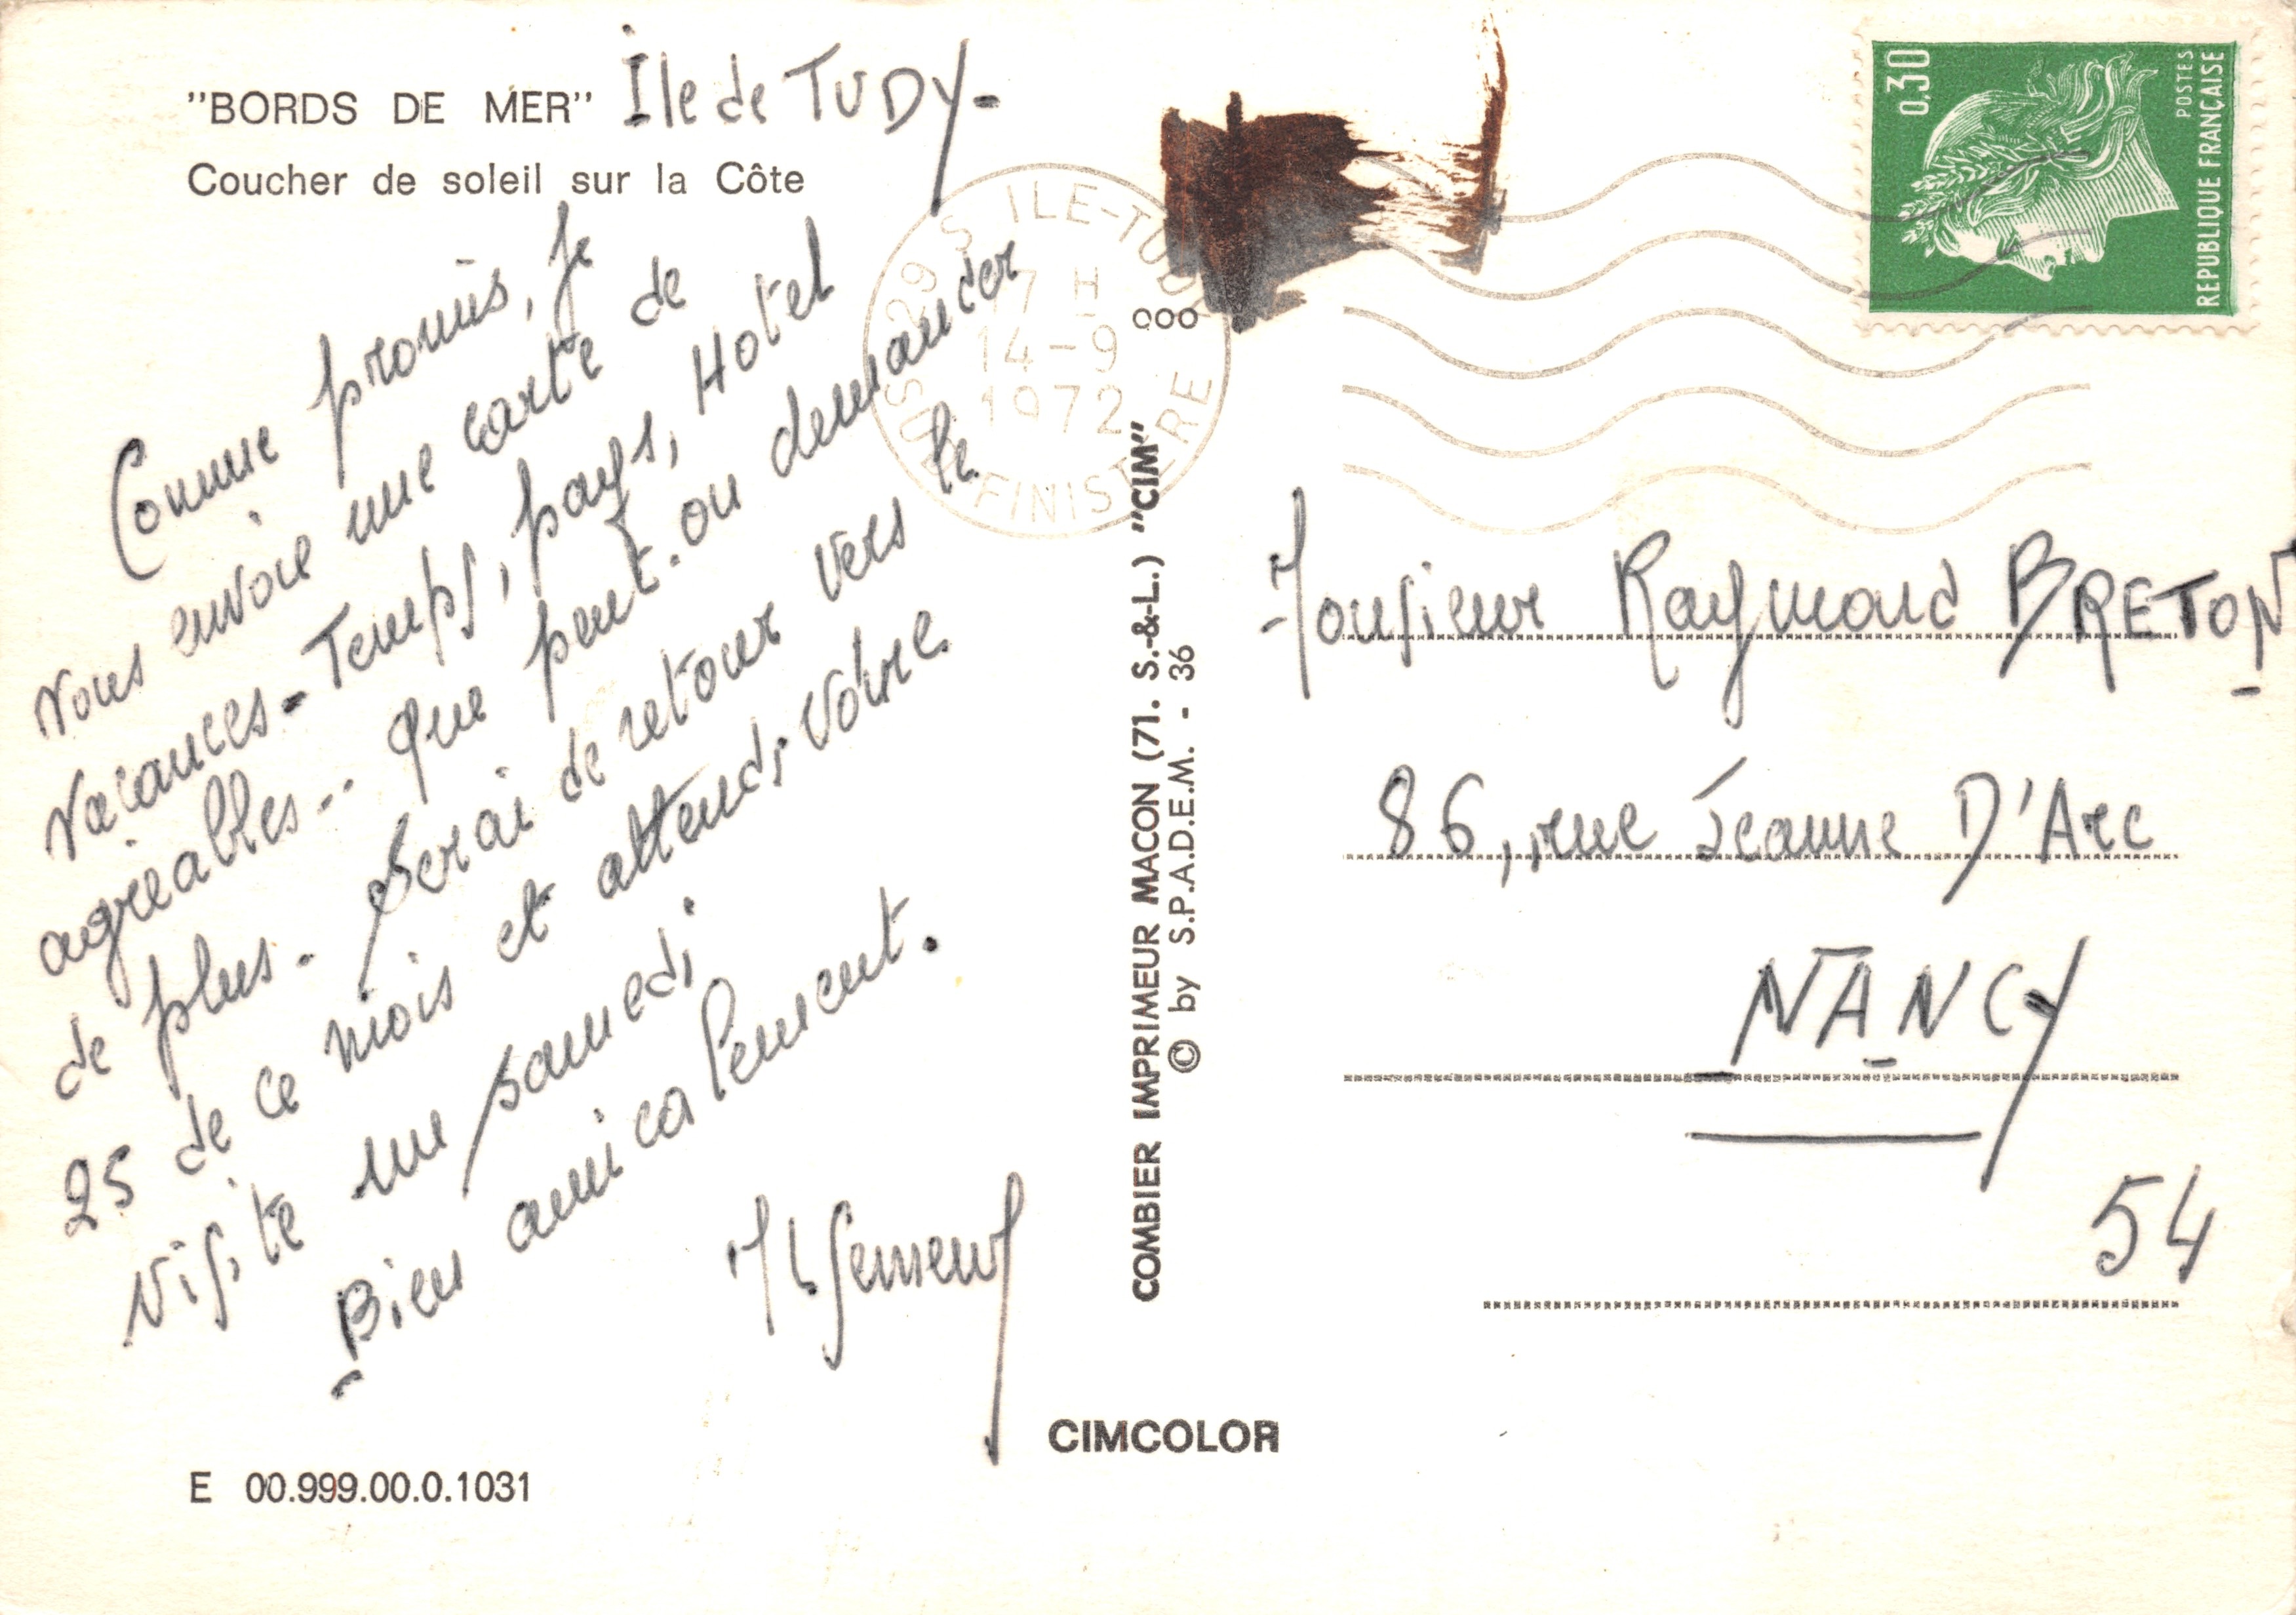 "BORDS DE MER" Ile de TUDY-
Coucher de soleil sur la Côte
Comme promis, je
vous envoie une carte de
vacances - Temps, pays, Hotel
agréables.. que peut-on demander
de plus - Serai de retour vers le
25 de ce mois et attends votre
visite un samedi
Bien amicalement.
29 S ILE-TUDY
17 H
14-9
1972
FINISTERE
COMBIER IMPRIMEUR MACON (71. S.-&-L.) "CIM"
© by S.P.A.D.E.M. - 36
CIMCOLOR
E 00.999.00.0.1031
0,30
POSTES
REPUBLIQUE FRANÇAISE
Monsieur Raymond BRETON
86, rue Jeanne D'Arc
NANCY
54